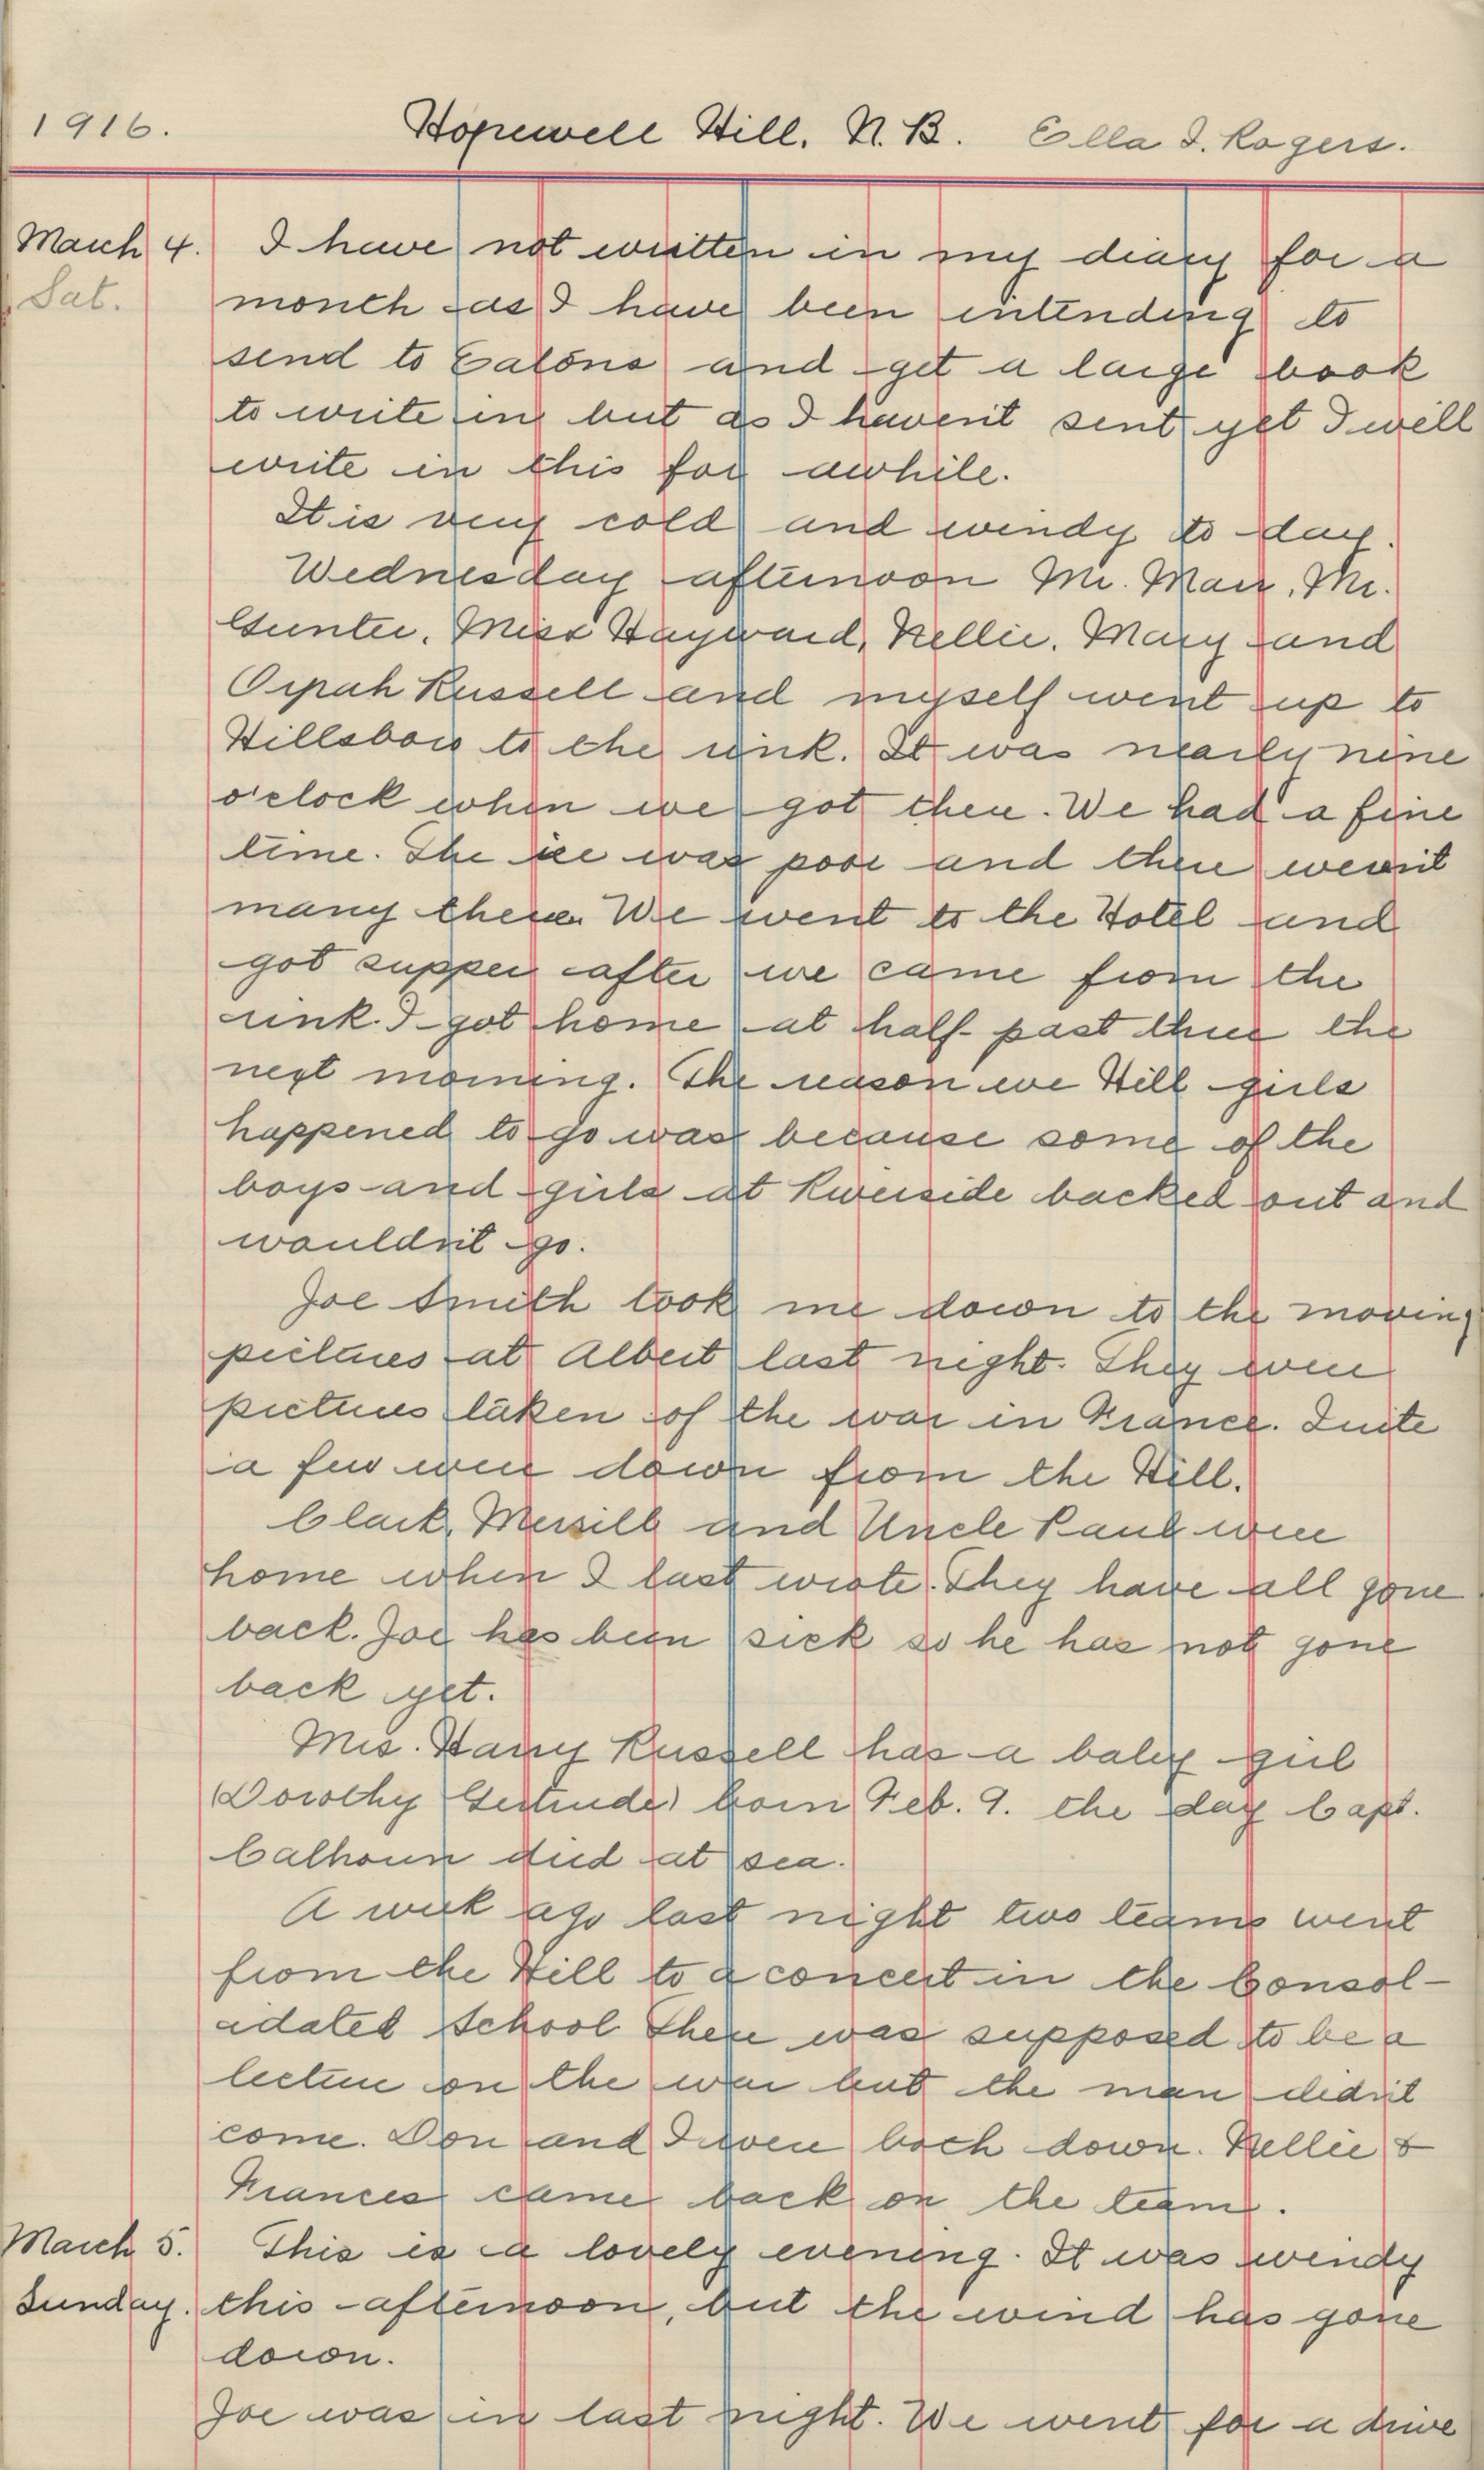 1916. Hopewell Hill, N. B. Ella I. Rogers.
March 4. I have not written in my diary for a
Sat. month as I have been intending to
send to Eatons and get a large book
to write in but as I haven't sent yet I will
write in this for awhile.
It is very cold and windy to day.
Wednesday afternoon Mr. Marr, Mr.
Gunter, Miss Hayward, Nellie, Mary and
Orpah Russell and myself went up to
Hillsboro to the rink. It was nearly nine
o'clock when we got there. We had a fine
time. The ice was poor and there weren't
many there. We went to the Hotel and
got supper after we came from the
rink. I got home at half-past three the
next morning. The reason we Hill girls
happened to go was because some of the
boys and girls at Riverside backed out and
wouldn't go.
Joe Smith took me down to the moving
pictures at Albert last night. They were
pictures taken of the war in France. Quite
a few were down from the Hill.
Clark, Merrill and Uncle Paul were
home when I last wrote. They have all gone
back. Joe has been sick so he has not gone
back yet.
Mrs. Harry Russell has a baby girl
(Dorothy Gertrude) born Feb. 9. the day Capt.
Calhoun died at sea.
A week ago last night two teams went
from the Hill to a concert in the Consol-
idated School There was supposed to be a
lecture on the war but the man didn't
come. Don and I were both down. Nellie &
Frances came back on the team.
March 5. This is a lovely evening. It was windy
Sunday. this afternoon, but the wind has gone
down.
Joe was in last night. We went for a drive